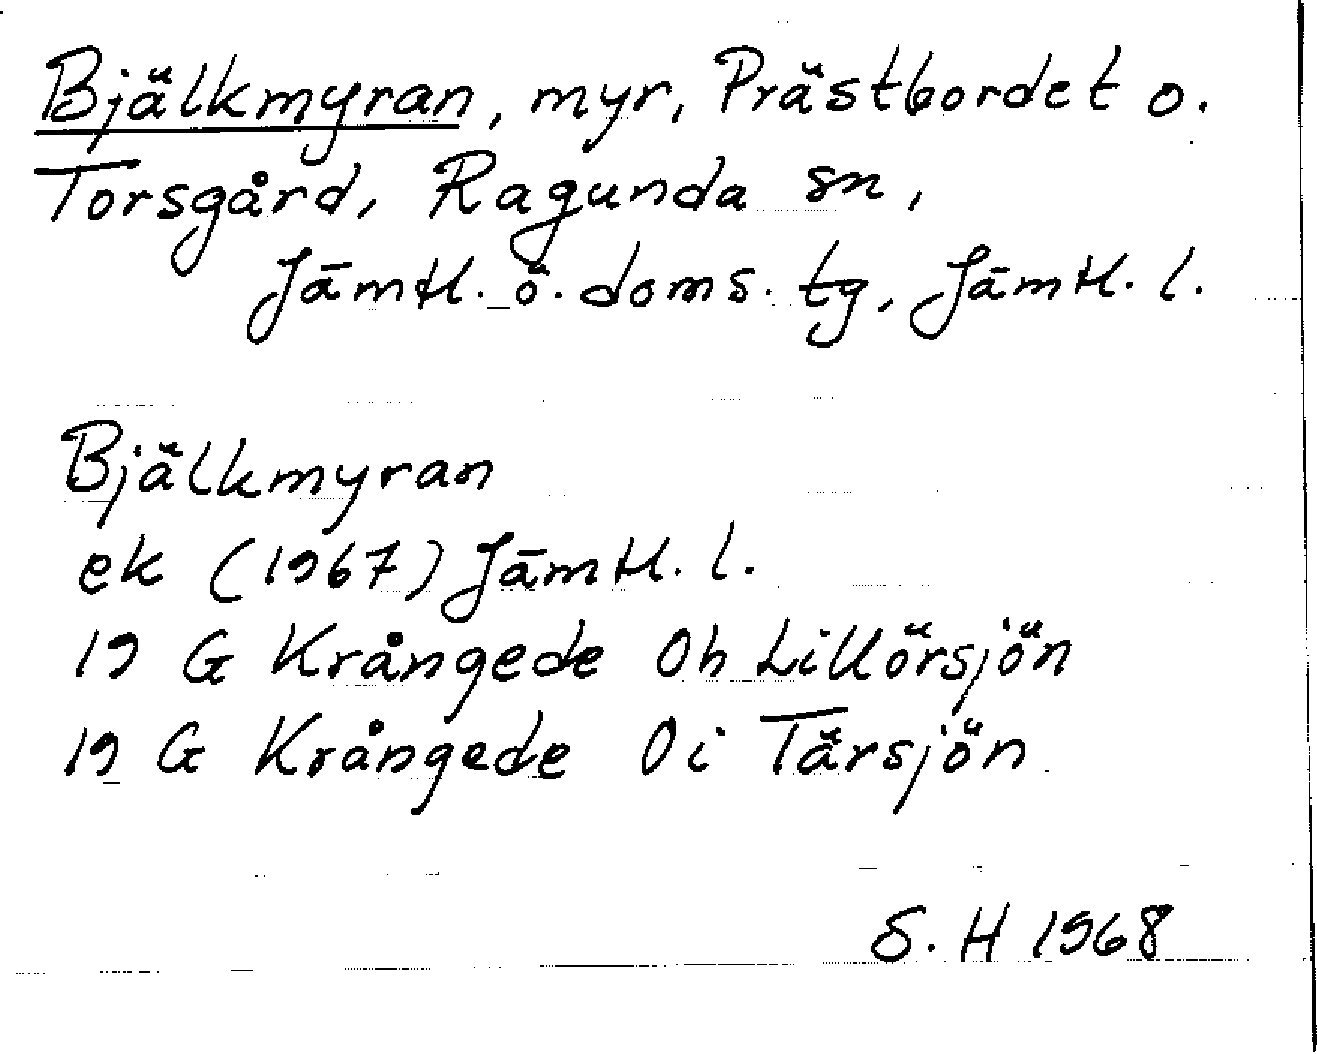 Bjälkmyran, myr, Prästbordet o.
Torsgård, Ragunda sn,
Jämtl. ö. doms. tg, Jämtl. l.
Bjälkmyran
ek (1967) Jämtl. l.
19 G Krångede Oh Lillörsjön
19 G Krångede Oi Tärsjön
S. H 1968